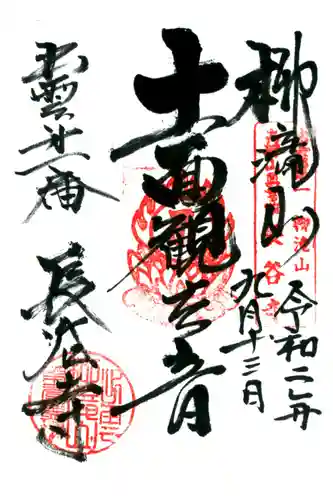 柳滝山
令和二年
九月十三日
十一面觀世音
出雲廿番
長台寺